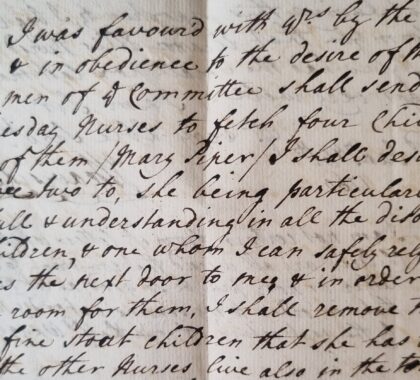 I was favour'd with yrs by the
& in obedience to the desire of th
men of ye Committee shall send
esday Nurses to fetch four Chi
of them /Mary Piper/ I shall des
two to, she being particular
ull & understanding in all the dis
ildren, & one whom I can safely rely
es the next door to me, & in order
room for them, I shall remove
fine stout children that she has
the other Nurses live also in the to